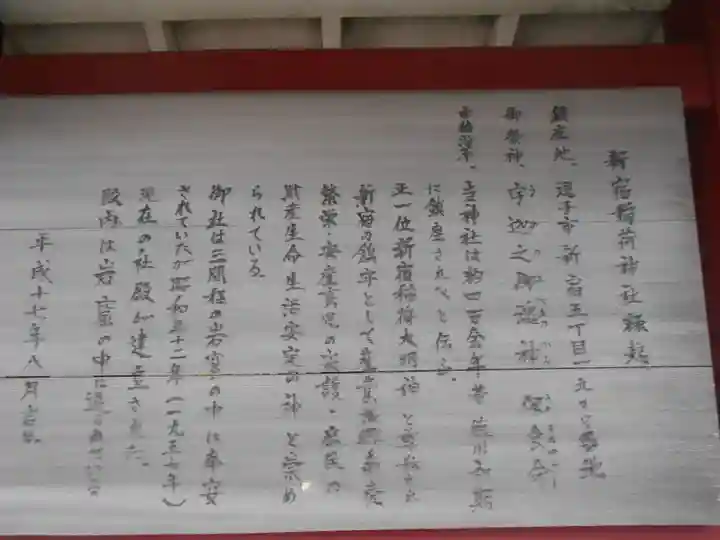 新宿稲荷神社縁起
鎮座地、逗子市新宿五丁目
御祭神、宇迦之御魂神
当神社は約四百余年昔徳川初期
に鎮座されたと伝う。
正一位新宿稲荷大明神と
新宿の鎮守として産業
繁栄・安産育児の守護・庶民の
財産生命生活安定の神と崇め
られている。
御社は三間程の岩窟の中に奉安
されていたが昭和三十二年(一九五七年)
現在の社殿が建立された。
殿内は岩窟の中に
平成十七年八月吉日